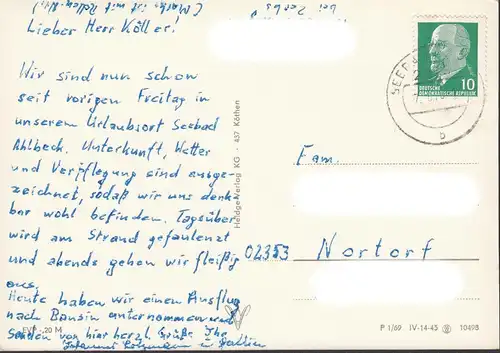 bei Zerbs
(Marke ist mit Kotten-
Lieber Herr Köller!
Wir sind nun schon
seit vorigen Freitag in
unserem Urlaubsort Seebad
Ahlbeck. Unterkunft, Wetter
und Verpflegung sind ausge-
zeichnet, sodaß wir uns denk-
bar wohl befinden. Tagsüber
wird am Strand gefaulenzt
und abends gehen wir fleißig
aus.
Heute haben wir einen Ausflug
nach Bansin unternommen und
senden von hier herzl. Grüße Ihr
u. Gattin
EVP -,20 M
Heldge-Verlag KG - 437 Köthen
SEEB
b
10
DEUTSCHE
DEMOKRATISCHE REPUBLIK
Fam.
02353
Nortorf
P 1/69 IV-14-45 10498